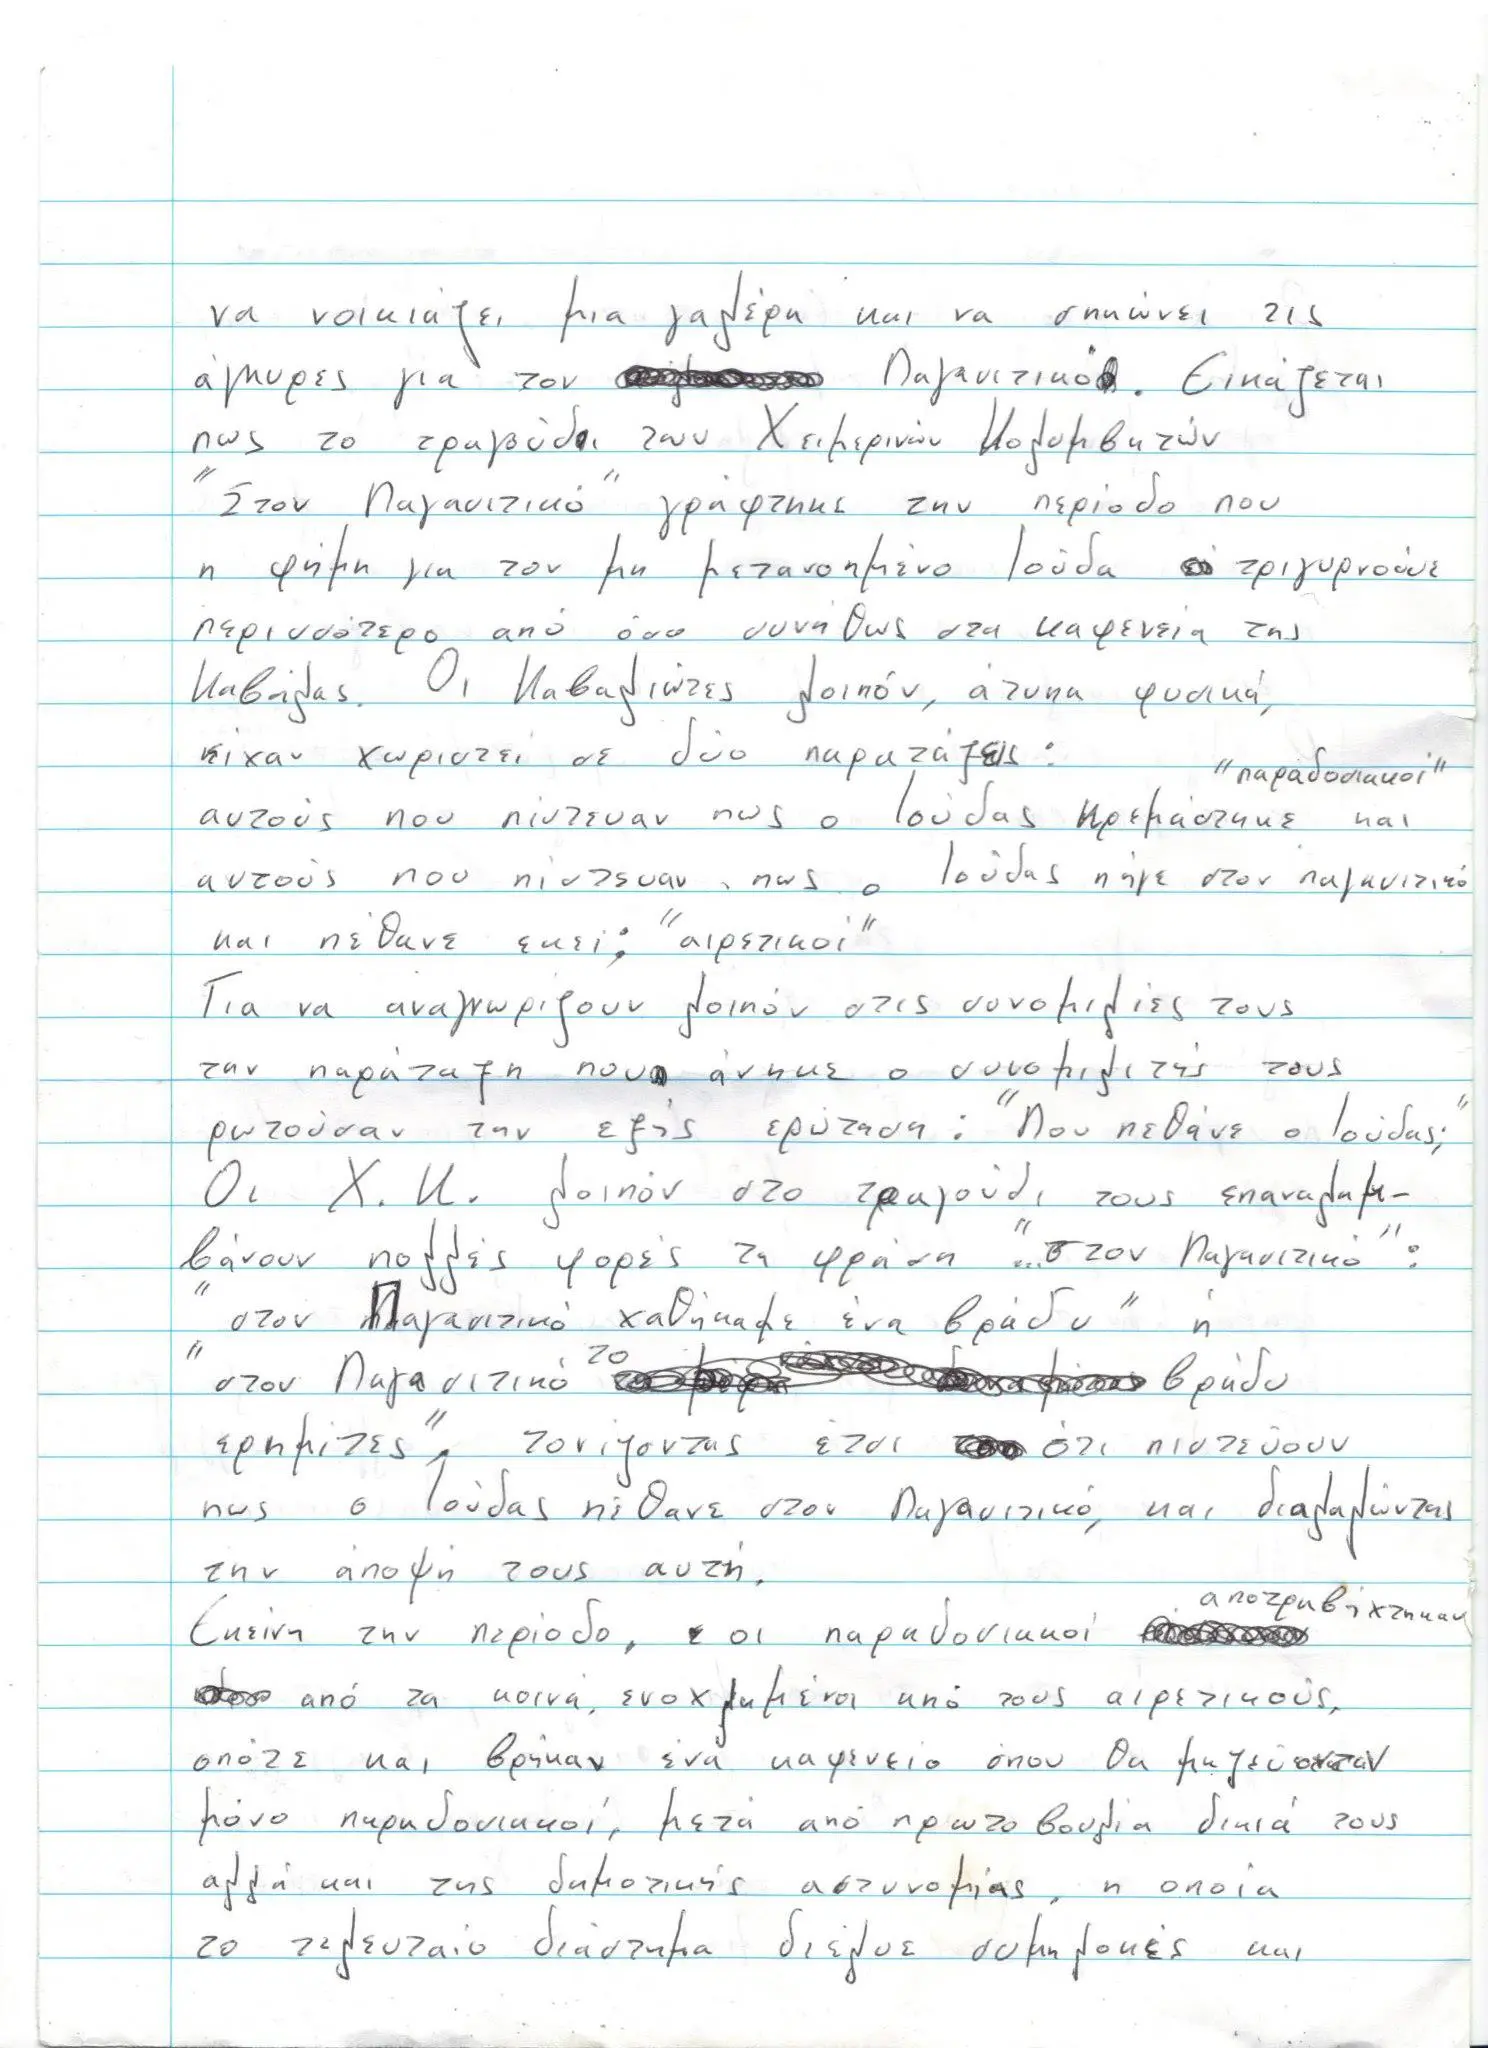 να νοικιάζει μια γαλέρα και να σηκώνει τις
άγκυρες για τον Παγασιτικό. Εικάζεται
πως το τραγούδι των Χειμερινών Κολυμβητών
"Στον Παγασιτικό" γράφτηκε την περίοδο που
η φήμη για τον μη μετανοημένο Ιούδα τριγυρνούσε
περισσότερο από όσο συνήθως στα καφενεία της
Καβάλας. Οι Καβαλιώτες λοιπόν, άτυπα φυσικά,
είχαν χωριστεί σε δύο παρατάξεις:
"παραδοσιακοί"
αυτούς που πίστευαν πως ο Ιούδας κρεμάστηκε και
αυτούς που πίστευαν πως ο Ιούδας πήγε στον παγασιτικό
και πέθανε εκεί; "αιρετικοί"
Για να αναγνωρίζουν λοιπόν στις συνομιλίες τους
την παράταξη που άνηκε ο συνομιλητής τους
ρωτούσαν την εξής ερώτηση: "Που πεθάνε ο Ιούδας;"
Οι Χ.Κ. λοιπόν στο τραγούδι τους επαναλαμ-
βάνουν πολλές φορές τη φράση "...στον Παγασιτικό":
"στον Παγασιτικό χαθήκαμε ένα βράδυ" ή
"στον Παγασιτικό το βράδυ
ερημίτες", τονίζοντας έτσι ότι πιστεύουν
πως ο Ιούδας πέθανε στον Παγασιτικό, και διαλαλώντας
την άποψη τους αυτή.
Εκείνη την περίοδο, οι παραδοσιακοί αποτραβήχτηκαν
από τα κοινά, ενοχλημένοι από τους αιρετικούς,
οπότε και βρήκαν ένα καφενείο όπου θα μαζεύονταν
μόνο παραδοσιακοί, μετά από πρωτοβουλία δικιά τους
αλλά και της δημοτικής αστυνομίας, η οποία
το τελευταίο διάστημα διέλυε συμπλοκές και